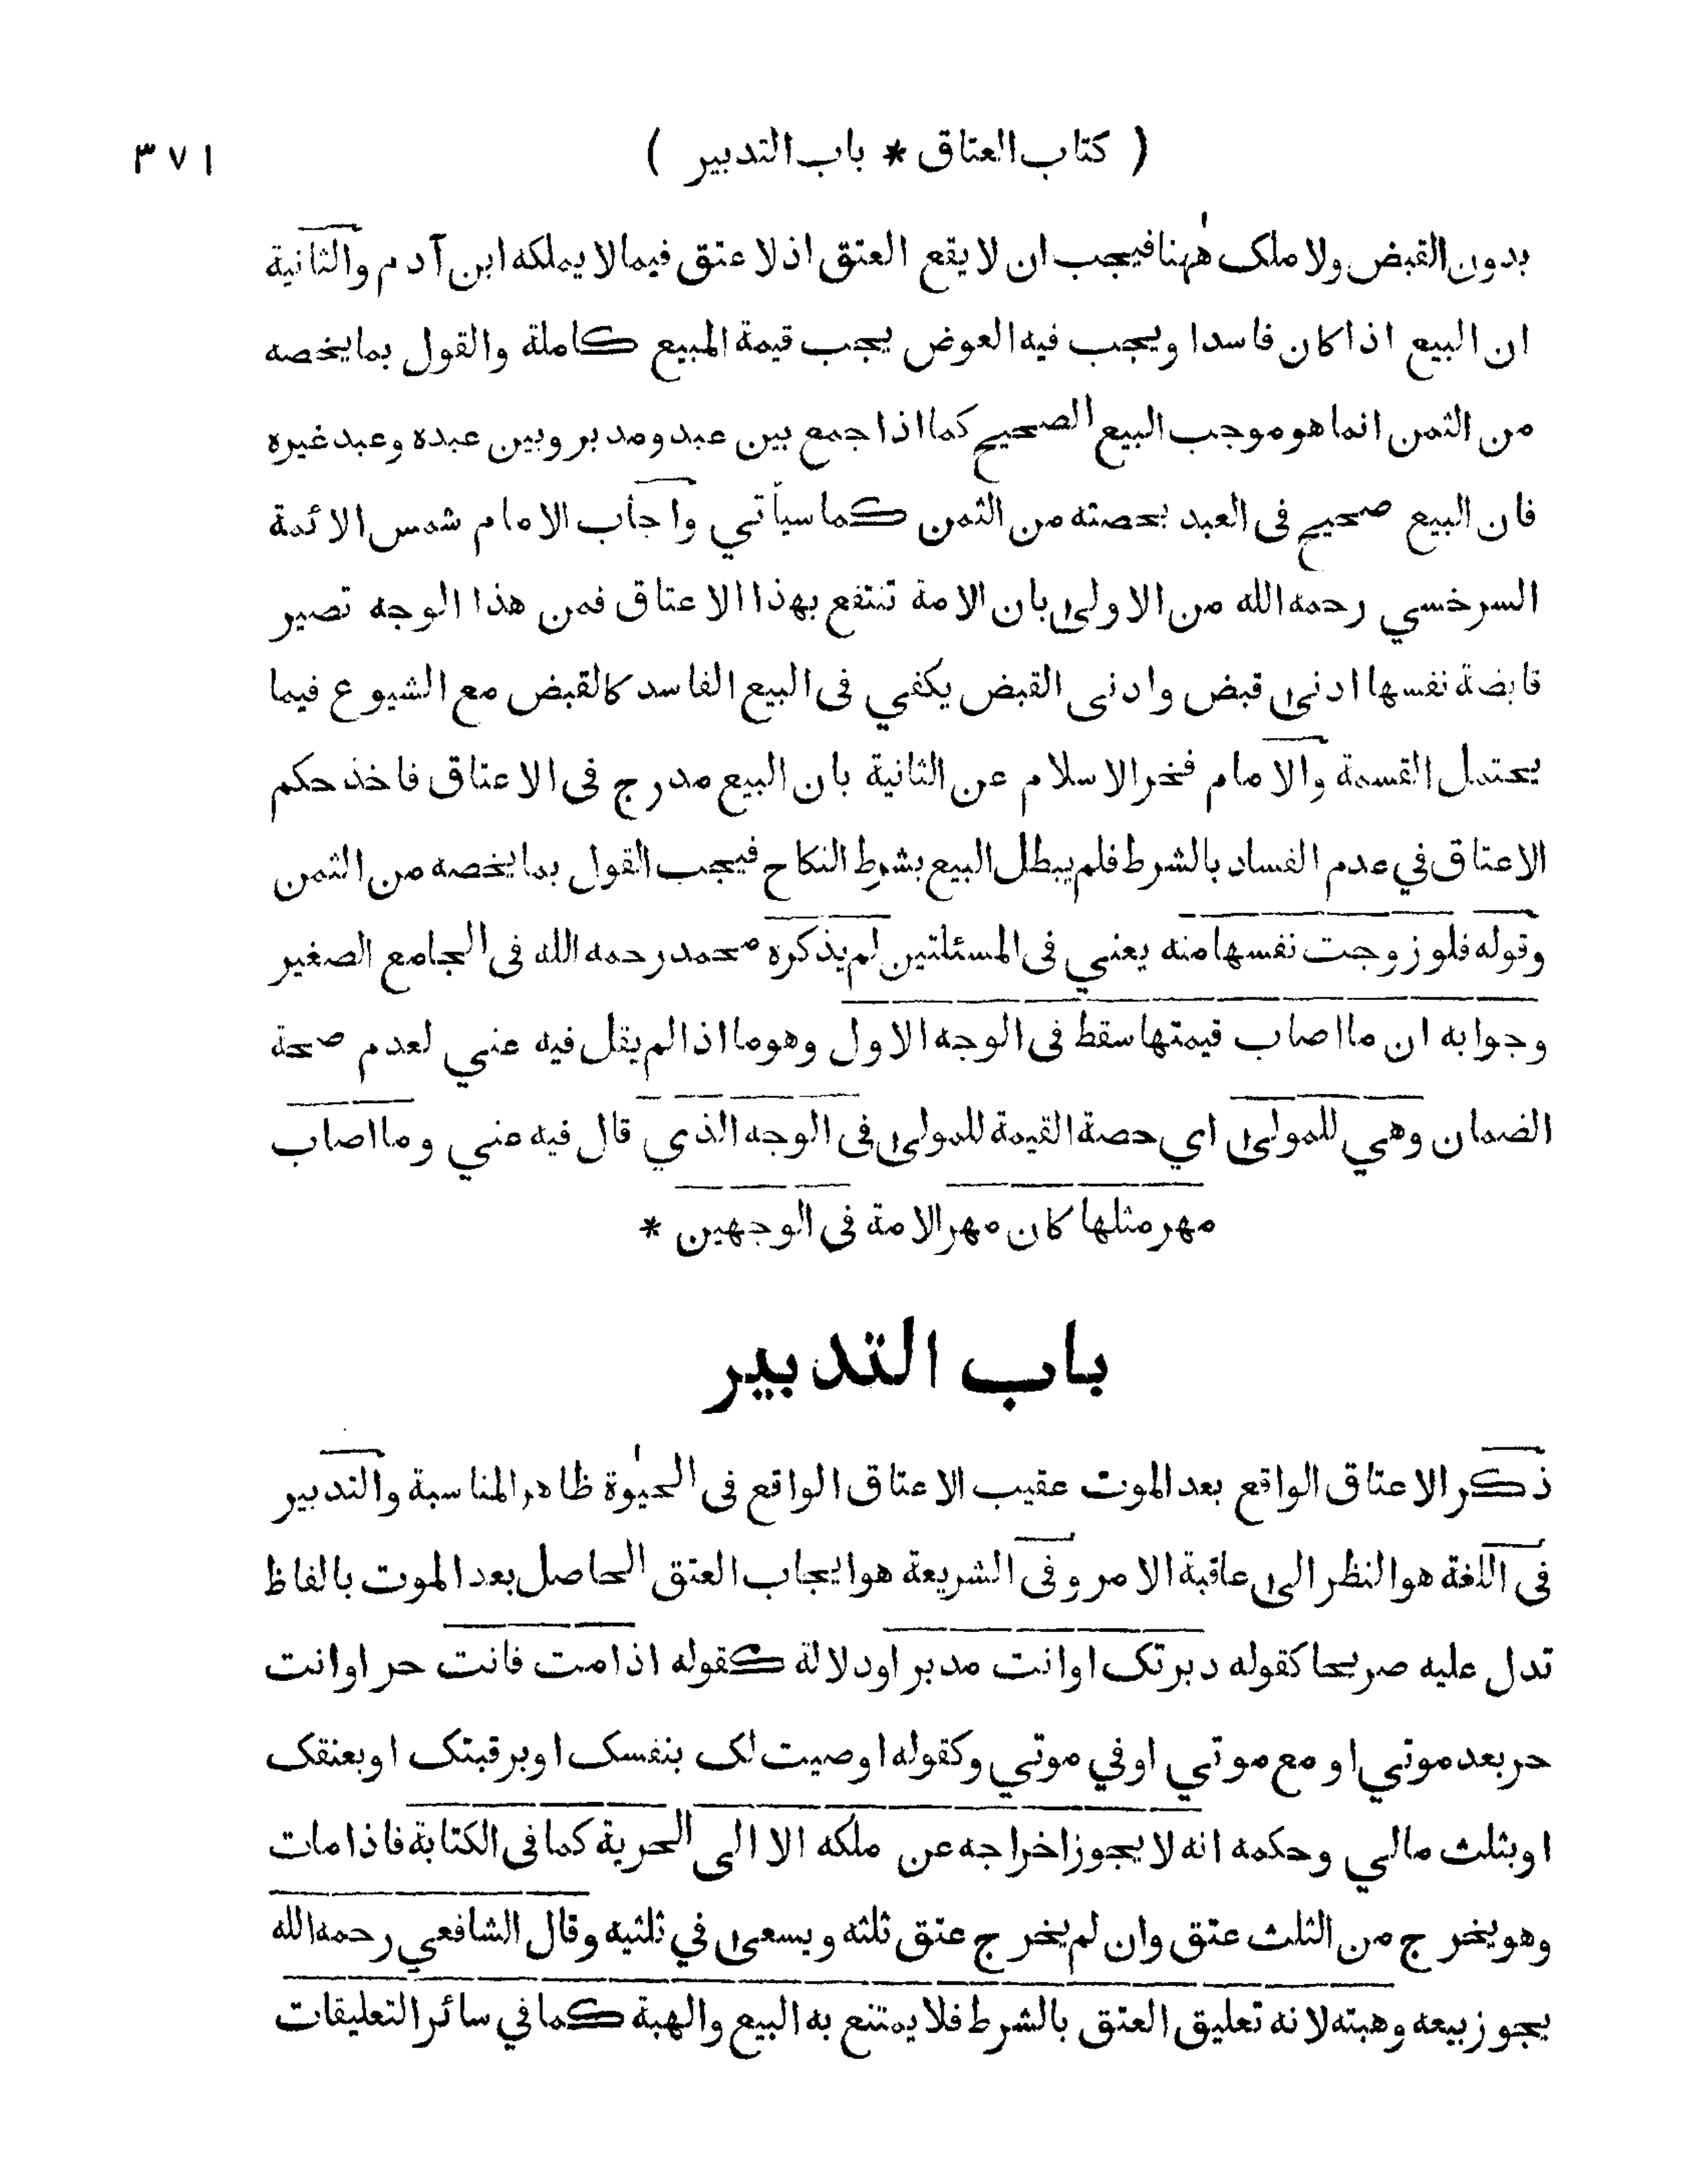 ( كتاب العتاق * باب التدبير ) ٣٧١
بدون القبض ولا ملك ههنا فيجب ان لا يقع العتق اذ لا عتق فيما لا يملكه ابن آدم والثانية
ان البيع اذا كان فاسدا ويجب فيه العوض يجب قيمة المبيع كاملة والقول بما يخصه
من الثمن انما هو موجب البيع الصحيح كما اذا جمع بين عبد ومدبر وبين عبده وعبد غيره
فان البيع صحيح فى العبد بحصته من الثمن كما سيأتي واجاب الامام شمس الائمة
السرخسي رحمه الله من الاولى بان الامة تنتفع بهذا الاعتاق فمن هذا الوجه تصير
قابضة نفسها ادنى قبض وادنى القبض يكفي فى البيع الفاسد كالقبض مع الشيوع فيما
يحتمل القسمة والامام فخر الاسلام عن الثانية بان البيع مدرج فى الاعتاق فاخذ حكم
الاعتاق في عدم الفساد بالشرط فلم يبطل البيع بشرط النكاح فيجب القول بما يخصه من الثمن
وقوله فلو زوجت نفسها منه يعني فى المسئلتين لم يذكره محمد رحمه الله فى الجامع الصغير
وجوابه ان ما اصاب قيمتها سقط فى الوجه الاول وهو ما اذا لم يقل فيه عني لعدم صحة
الضمان وهي للمولى اي حصة القيمة للمولى فى الوجه الذي قال فيه عني وما اصاب
مهر مثلها كان مهر الامة فى الوجهين *
باب التدبير
ذكر الاعتاق الواقع بعد الموت عقيب الاعتاق الواقع فى الحيوة ظاهر المناسبة والتدبير
فى اللغة هو النظر الى عاقبة الامر وفى الشريعة هو ايجاب العتق الحاصل بعد الموت بالفاظ
تدل عليه صريحا كقوله دبرتك او انت مدبر او دلالة كقوله اذا مت فانت حر او انت
حر بعد موتي او مع موتي او في موتي وكقوله اوصيت لك بنفسك او برقبتك او بعتقك
او بثلث مالي وحكمه انه لا يجوز اخراجه عن ملكه الا الى الحرية كما فى الكتابة فاذا مات
وهو يخرج من الثلث عتق وان لم يخرج عتق ثلثه ويسعى في ثلثيه وقال الشافعي رحمه الله
يجوز بيعه وهبته لانه تعليق العتق بالشرط فلا يمتنع به البيع والهبة كما في سائر التعليقات